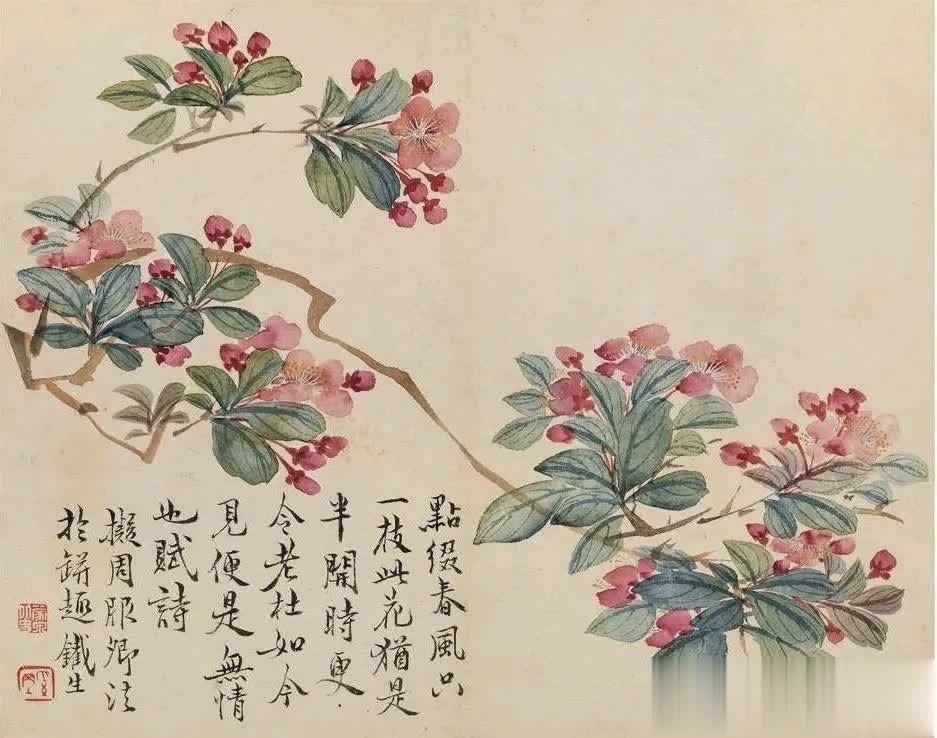 點綴春風只
一枝此花猶是
半開時更
令老杜如今
見便是無情
也賦詩
擬周服卿法
於缾趣鐵生